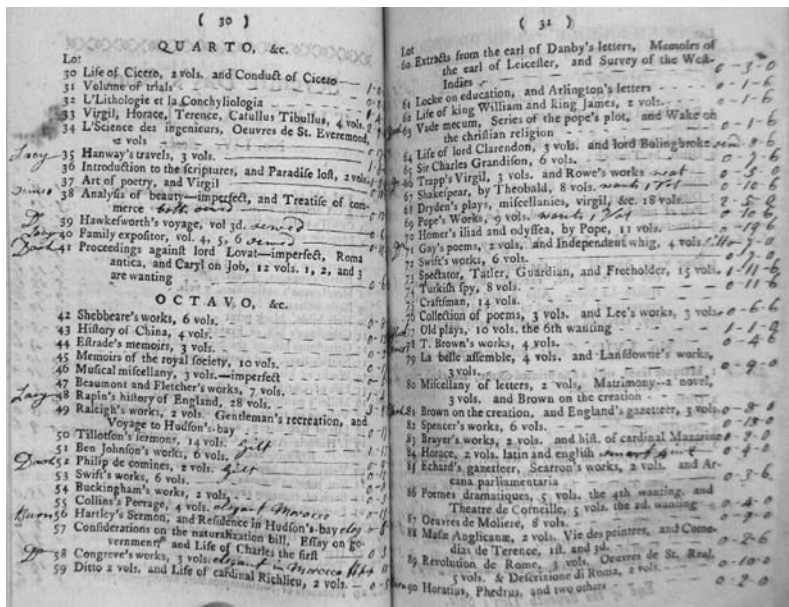 ( 30 )
QUARTO, &c.
Lot
30 Life of Cicero, 2 vols. and Conduct of Cicero
31 Volume of trials
32 L'Lithologie et la Conchyliologia
33 Virgil, Horace, Terence, Catullus Tibullus, 4 vols.
34 L'Science des ingenieurs, Oeuvres de St. Everemond,
2 vols
Lacy 35 Hanway's travels, 3 vols.
36 Introduction to the scriptures, and Paradise lost, 2 vols.
37 Art of poetry, and Virgil
38 Analysis of beauty—imperfect, and Treatise of com-
merce both sewed
39 Hawkesworth's voyage, vol 3d. sewed
40 Family expositor, vol. 4, 5, 6 sewed
41 Proceedings against lord Lovat—imperfect, Roma
antica, and Caryl on Job, 12 vols. 1, 2, and 3
are wanting
OCTAVO, &c.
42 Shebbeare's works, 6 vols.
43 History of China, 4 vols.
44 Estrade's memoirs, 3 vols.
45 Memoirs of the royal society, 10 vols.
46 Musical miscellany, 3 vols.—imperfect
47 Beaumont and Fletcher's works, 7 vols.
Lacy 48 Rapin's history of England, 28 vols.
49 Raleigh's works, 2 vols. Gentleman's recreation, and
Voyage to Hudson's-bay
50 Tillotson's sermons, 14 vols. gilt
51 Ben Johnson's works, 6 vols.
52 Philip de comines, 2 vols. gilt
53 Swift's works, 6 vols.
54 Buckingham's works, 2 vols.
55 Collins's Peerage, 4 vols. elegant Morocco
56 Hartley's Sermon, and Residence in Hudson's-bay
57 Considerations on the naturalization bill, Essay on go-
vernment and Life of Charles the first
58 Congreve's works, 3 vols. elegant in Morocco
59 Ditto 2 vols. and Life of cardinal Richlieu, 2 vols.
( 31 )
Lot
60 Extracts from the earl of Danby's letters, Memoirs of
the earl of Leicester, and Survey of the West-
Indies 0-3-0
61 Locke on education, and Arlington's letters 0-1-6
62 Life of king William and king James, 2 vols. 0-1-6
63 Vade mecum, Series of the pope's plot, and Wake on
the christian religion 0-1-6
64 Life of lord Clarendon, 3 vols. and lord Bolingbroke 8-6
65 Sir Charles Grandison, 6 vols. 0-7-6
66 Trapp's Virgil, 3 vols. and Rowe's works neat 0-5-0
67 Shakespear, by Theobald, 8 vols. wants 1 Vol 0-10-6
68 Dryden's plays, miscellanies, virgil, &c. 18 vols. 2-5-0
69 Pope's Works, 9 vols. wants 1 Vol 0-10-6
70 Homer's iliad and odyssea, by Pope, 11 vols. 0-19-6
71 Gay's poems, 2 vols. and Independent whig, 4 vols. 7-0
72 Swift's works, 6 vols. 0-7-0
73 Spectator, Tatler, Guardian, and Freeholder, 15 vols. 1-11-6
74 Turkish spy, 8 vols. 0-11-6
75 Craftsman, 14 vols.
76 Collection of poems, 3 vols. and Lee's works, 3 vols. 0-6-6
77 Old plays, 10 vols. the 6th wanting 1-1-0
78 T. Brown's works, 4 vols. 0-4-6
79 La belle assemble, 4 vols. and Lansdowne's works,
3 vols. 0-9-0
80 Miscellany of letters, 2 vols, Matrimony--a novel,
3 vols. and Brown on the creation
81 Brown on the creation, and England's gazetteer, 3 vols. 0-8-0
82 Spencer's works, 6 vols. 0-13-0
83 Bruyer's works, 2 vols. and hist. of cardinal Mazarine 0-2-0
84 Horace, 2 vols. latin and english 0-4-0
85 Echard's gazetteer, Scarron's works, 2 vols. and Ar-
cana parliamentaria 0-3-6
86 Poemes dramatiques, 5 vols. the 4th wanting, and
Theatre de Corneille, 5 vols. the 2d. wanting 0-4-0
87 Oeuvres de Moliere, 8 vols. 0-9-0
88 Musæ Anglicanæ, 2 vols. Vie des peintres, and Come-
dias de Terence, 1st. and 3d. 0-2-6
89 Revolution de Rome, 3 vols. Oeuvres de St. Real,
5 vols. & Descrizione di Roma, 2 vols. 0-10-0
90 Horatius, Phedrus, and two others 0-2-0